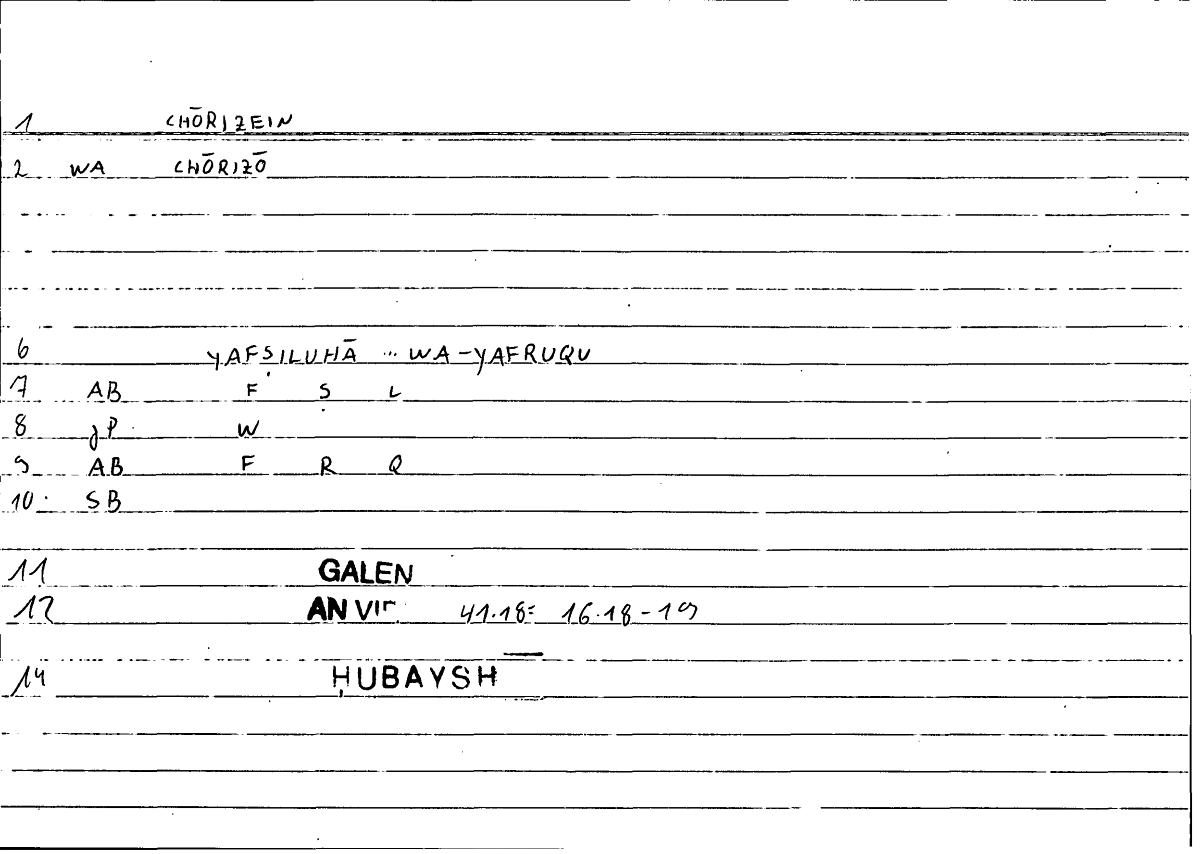 1 CHŌRIZEIN
2 WA CHŌRIZŌ
6 YAFṢILUHĀ ... WA-YAFRUQU
7 AB F Ṣ L
8 JP W
9 AB F R Q
10 SB
11 GALEN
12 AN VIR 41.18= 16.18-19
14 ḤUBAYSH